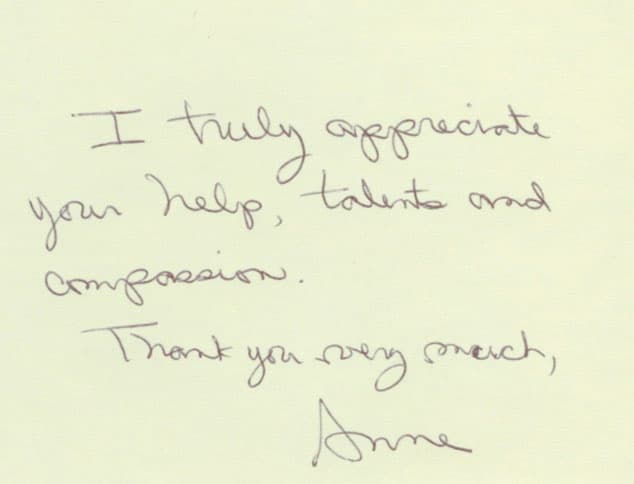 I truly appreciate
your help, talents and
compassion.
Thank you very much,
Anne